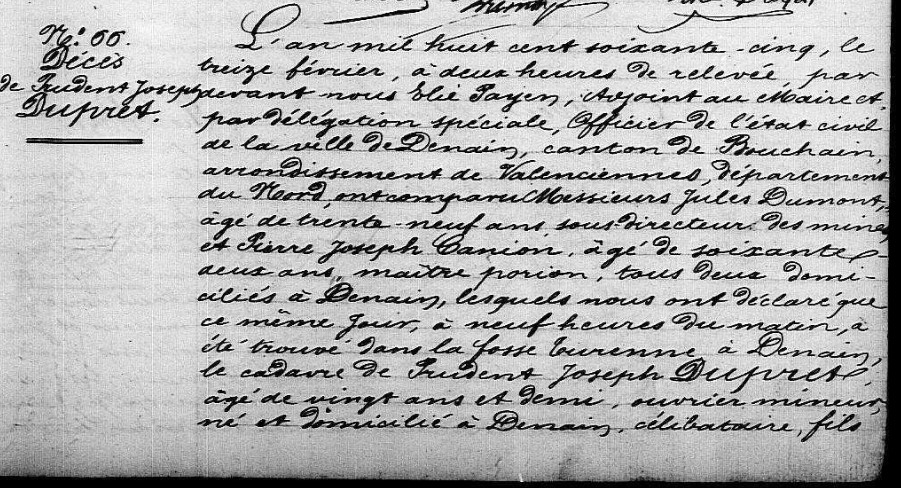 N.° 66.
Décès
de Prudent Joseph
Dupret.
L'an mil huit cent soixante-cinq, le
treize février, à deux heures de relevée, par
devant nous Elie Payen, Adjoint au Maire et,
par délégation spéciale, Officier de l'état civil
de la ville de Denain, canton de Bouchain,
arrondissement de Valenciennes, département
du Nord, ont comparu Messieurs Jules Dumont,
âgé de trente-neuf ans, sous-directeur des mines
et Pierre Joseph Canion, âgé de soixante-
deux ans, maître porion, tous deux domi-
ciliés à Denain, lesquels nous ont déclaré que
ce même jour, à neuf heures du matin, a
été trouvé dans la fosse Turenne à Denain,
le cadavre de Prudent Joseph Dupret,
âgé de vingt ans et demi, ouvrier mineur,
né et domicilié à Denain, célibataire, fils